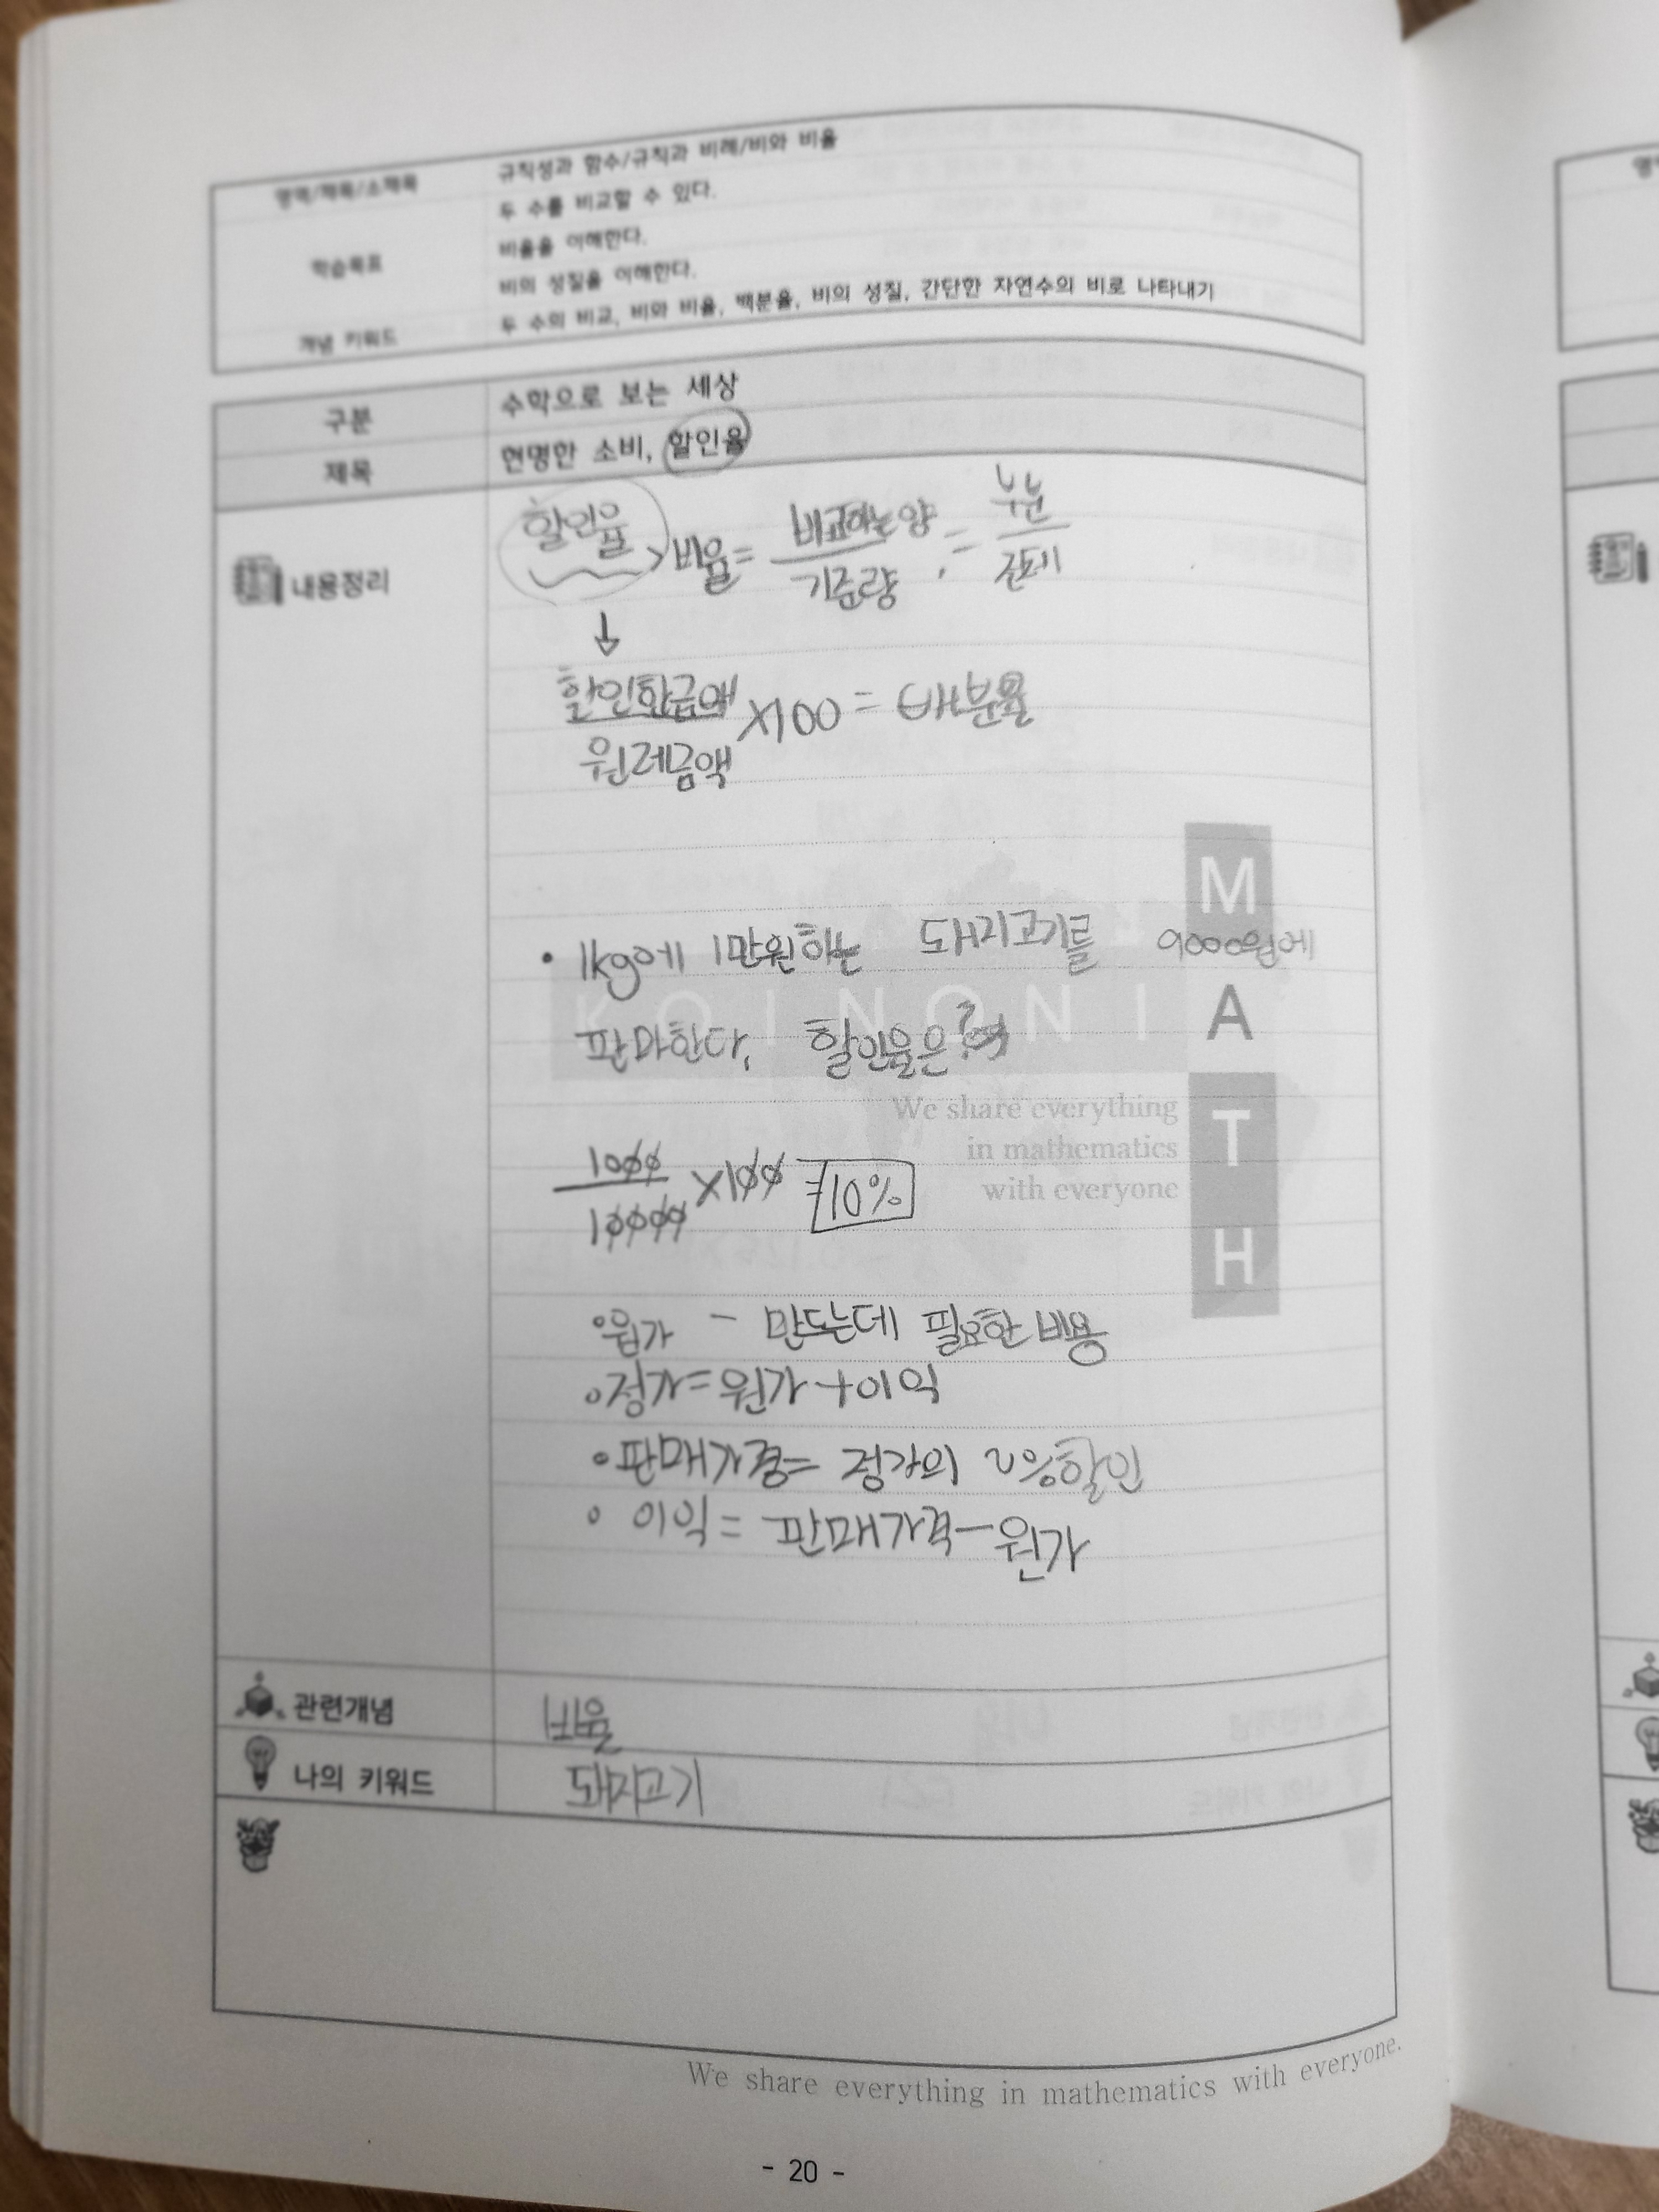 영역/제목/소제목 규칙성과 함수/규칙과 비례/비와 비율
학습목표 두 수를 비교할 수 있다.
비율을 이해한다.
비의 성질을 이해한다.
개념 키워드 두 수의 비교, 비와 비율, 백분율, 비의 성질, 간단한 자연수의 비로 나타내기
구분 수학으로 보는 세상
제목 현명한 소비, 할인율
내용정리
할인율 < 비율 = 비교하는양 / 기준량 = 부분 / 전체
↓
할인한금액 / 원레금액 X100 = 백분율
• 1kg에 1만원하는 돼지고기를 9000원에
판마한다, 할인율은?
1000 / 10000 X100 = 10%
원가 - 만드는데 필요한 비용
정가=원가+이익
판매가격= 정가의 ~%할인
이익= 판매가격-원가
KOINONI
We share everything
in mathematics
with everyone
M
A
T
H
관련개념 비율
나의 키워드 돼지고기
We share everything in mathematics with everyone.
- 20 -